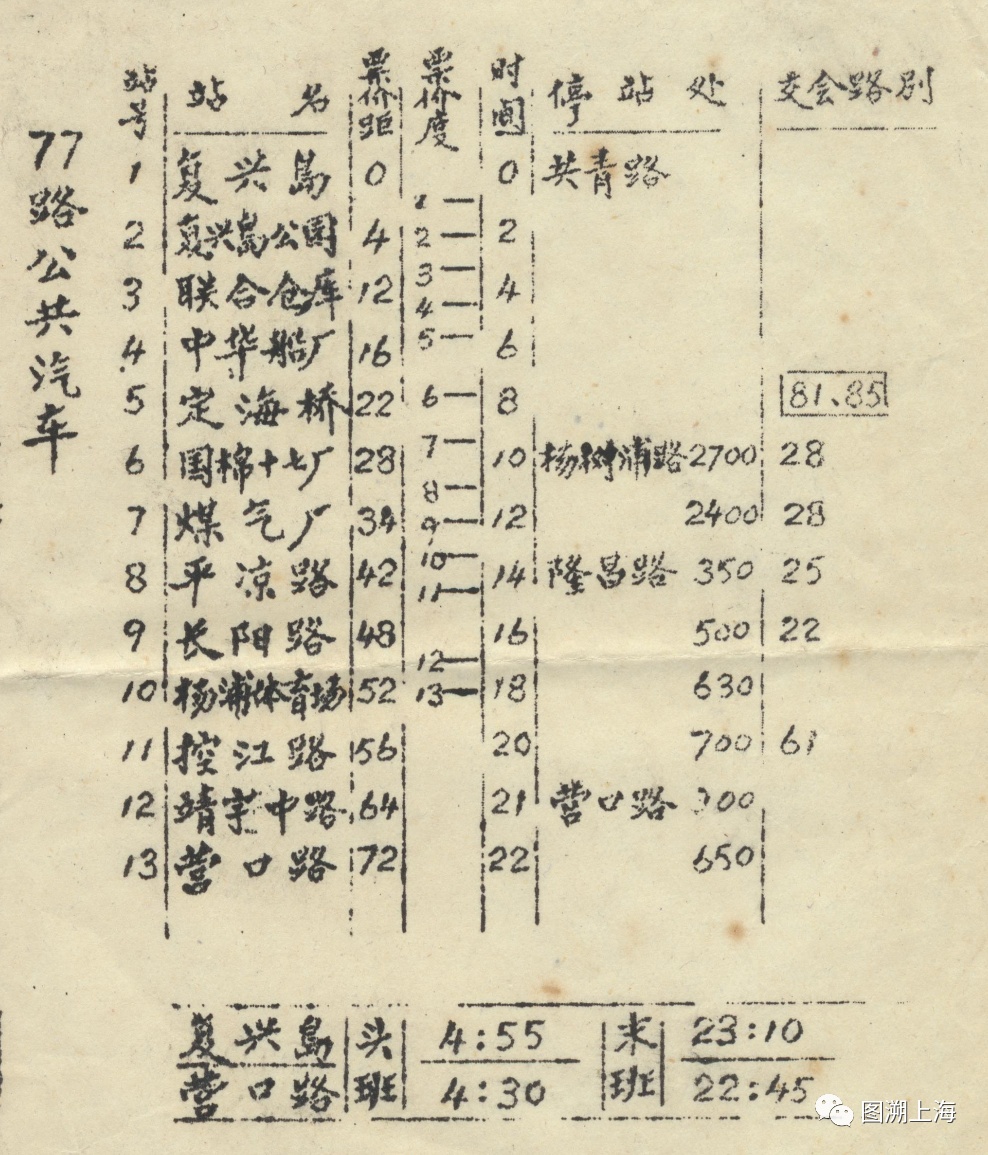 77路公共汽车
站号 站名 票价距 票价度 时间 停站处 交会路别
1 复兴岛 0 0 共青路
1
2 复兴岛公园 4 2 2
3
3 联合仓库 12 4
4
4 中华船厂 16 5 6
5 定海桥 22 6 8 81、85
6 国棉十七厂 28 7 10 杨树浦路2700 28
8
7 煤气厂 34 9 12 2400 28
10
8 平凉路 42 11 14 隆昌路 350 25
9 长阳路 48 16 500 22
12
10 杨浦体育场 52 13 18 630
11 控江路 56 20 700 61
12 靖宇中路 64 21 营口路 300
13 营口路 72 22 650
复兴岛 头班 4:55 末班 23:10
营口路 4:30 22:45
图溯上海